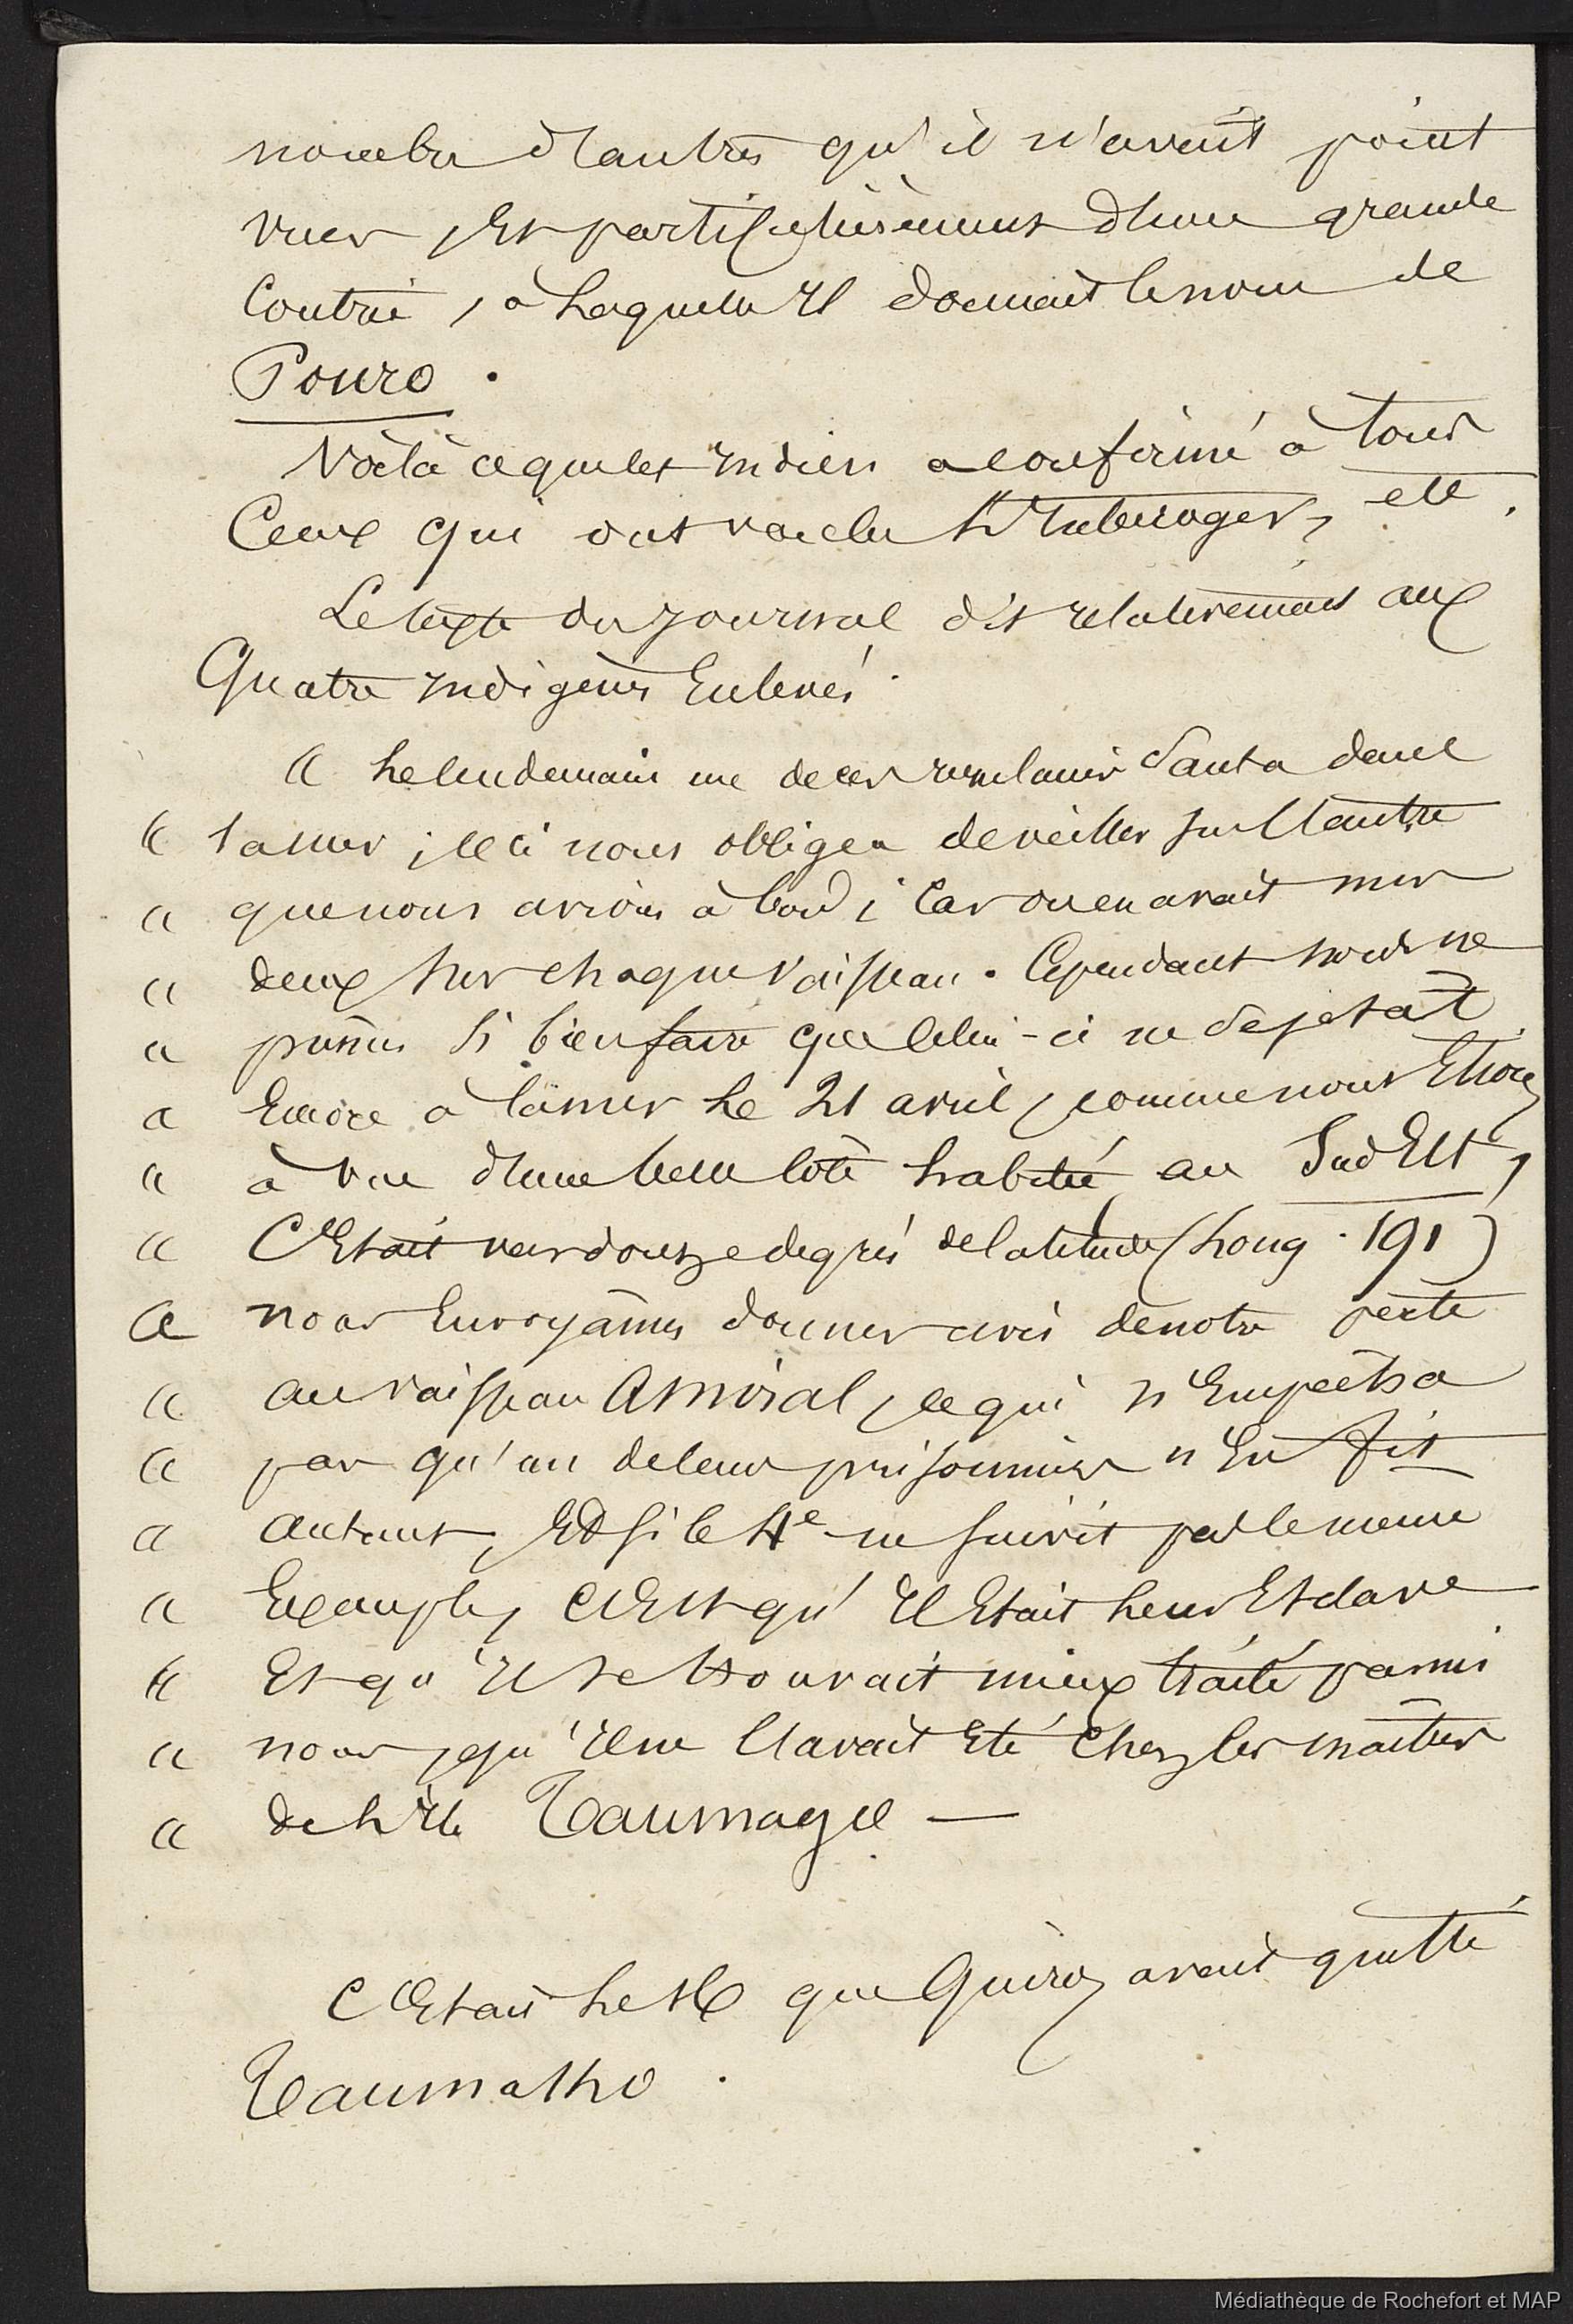 nombre d'autres qu'il n'avait point
vues, et particulièrement d'une grande
Contrée, à laquelle il donnait le nom de
Pouro.
Voilà ce que cet indien a confirmé à tous
Ceux qui ont voulu l'interroger, etc.
Le texte du journal dit relativement aux
Quatre indigènes Enlevés.
« Le lendemain un de ces insulaires sauta dans
« la mer ; ceci nous obligea de veiller sur l'autre
« que nous avions à bord ; Car on en avait mis
« deux sur chaque vaisseau. Cependant nous ne
« pûmes si bien faire que celui-ci ne se jetât
« Encore à la mer le 21 avril, comme nous Etions
« à vue d'une belle côte habitée au Sud Est,
« C'Etait vers douze degrés de latitude (Long. 191)
« nous Envoyâmes donner avis de notre perte
« au vaisseau Amiral, ce qui n'Empêcha
« pas qu'un de leurs prisonniers n'En fit
« autant, Et si le 4e ne suivit pas le même
« Exemple, C'Est qu'il Etait leur Esclave
« Et qu'il se trouvait mieux traité parmi
« nous, qu'il ne l'avait Eté chez les maîtres
« de l'ile Taumago —
C'Etait le 18 que Quiros avait quitté
Taumatho.